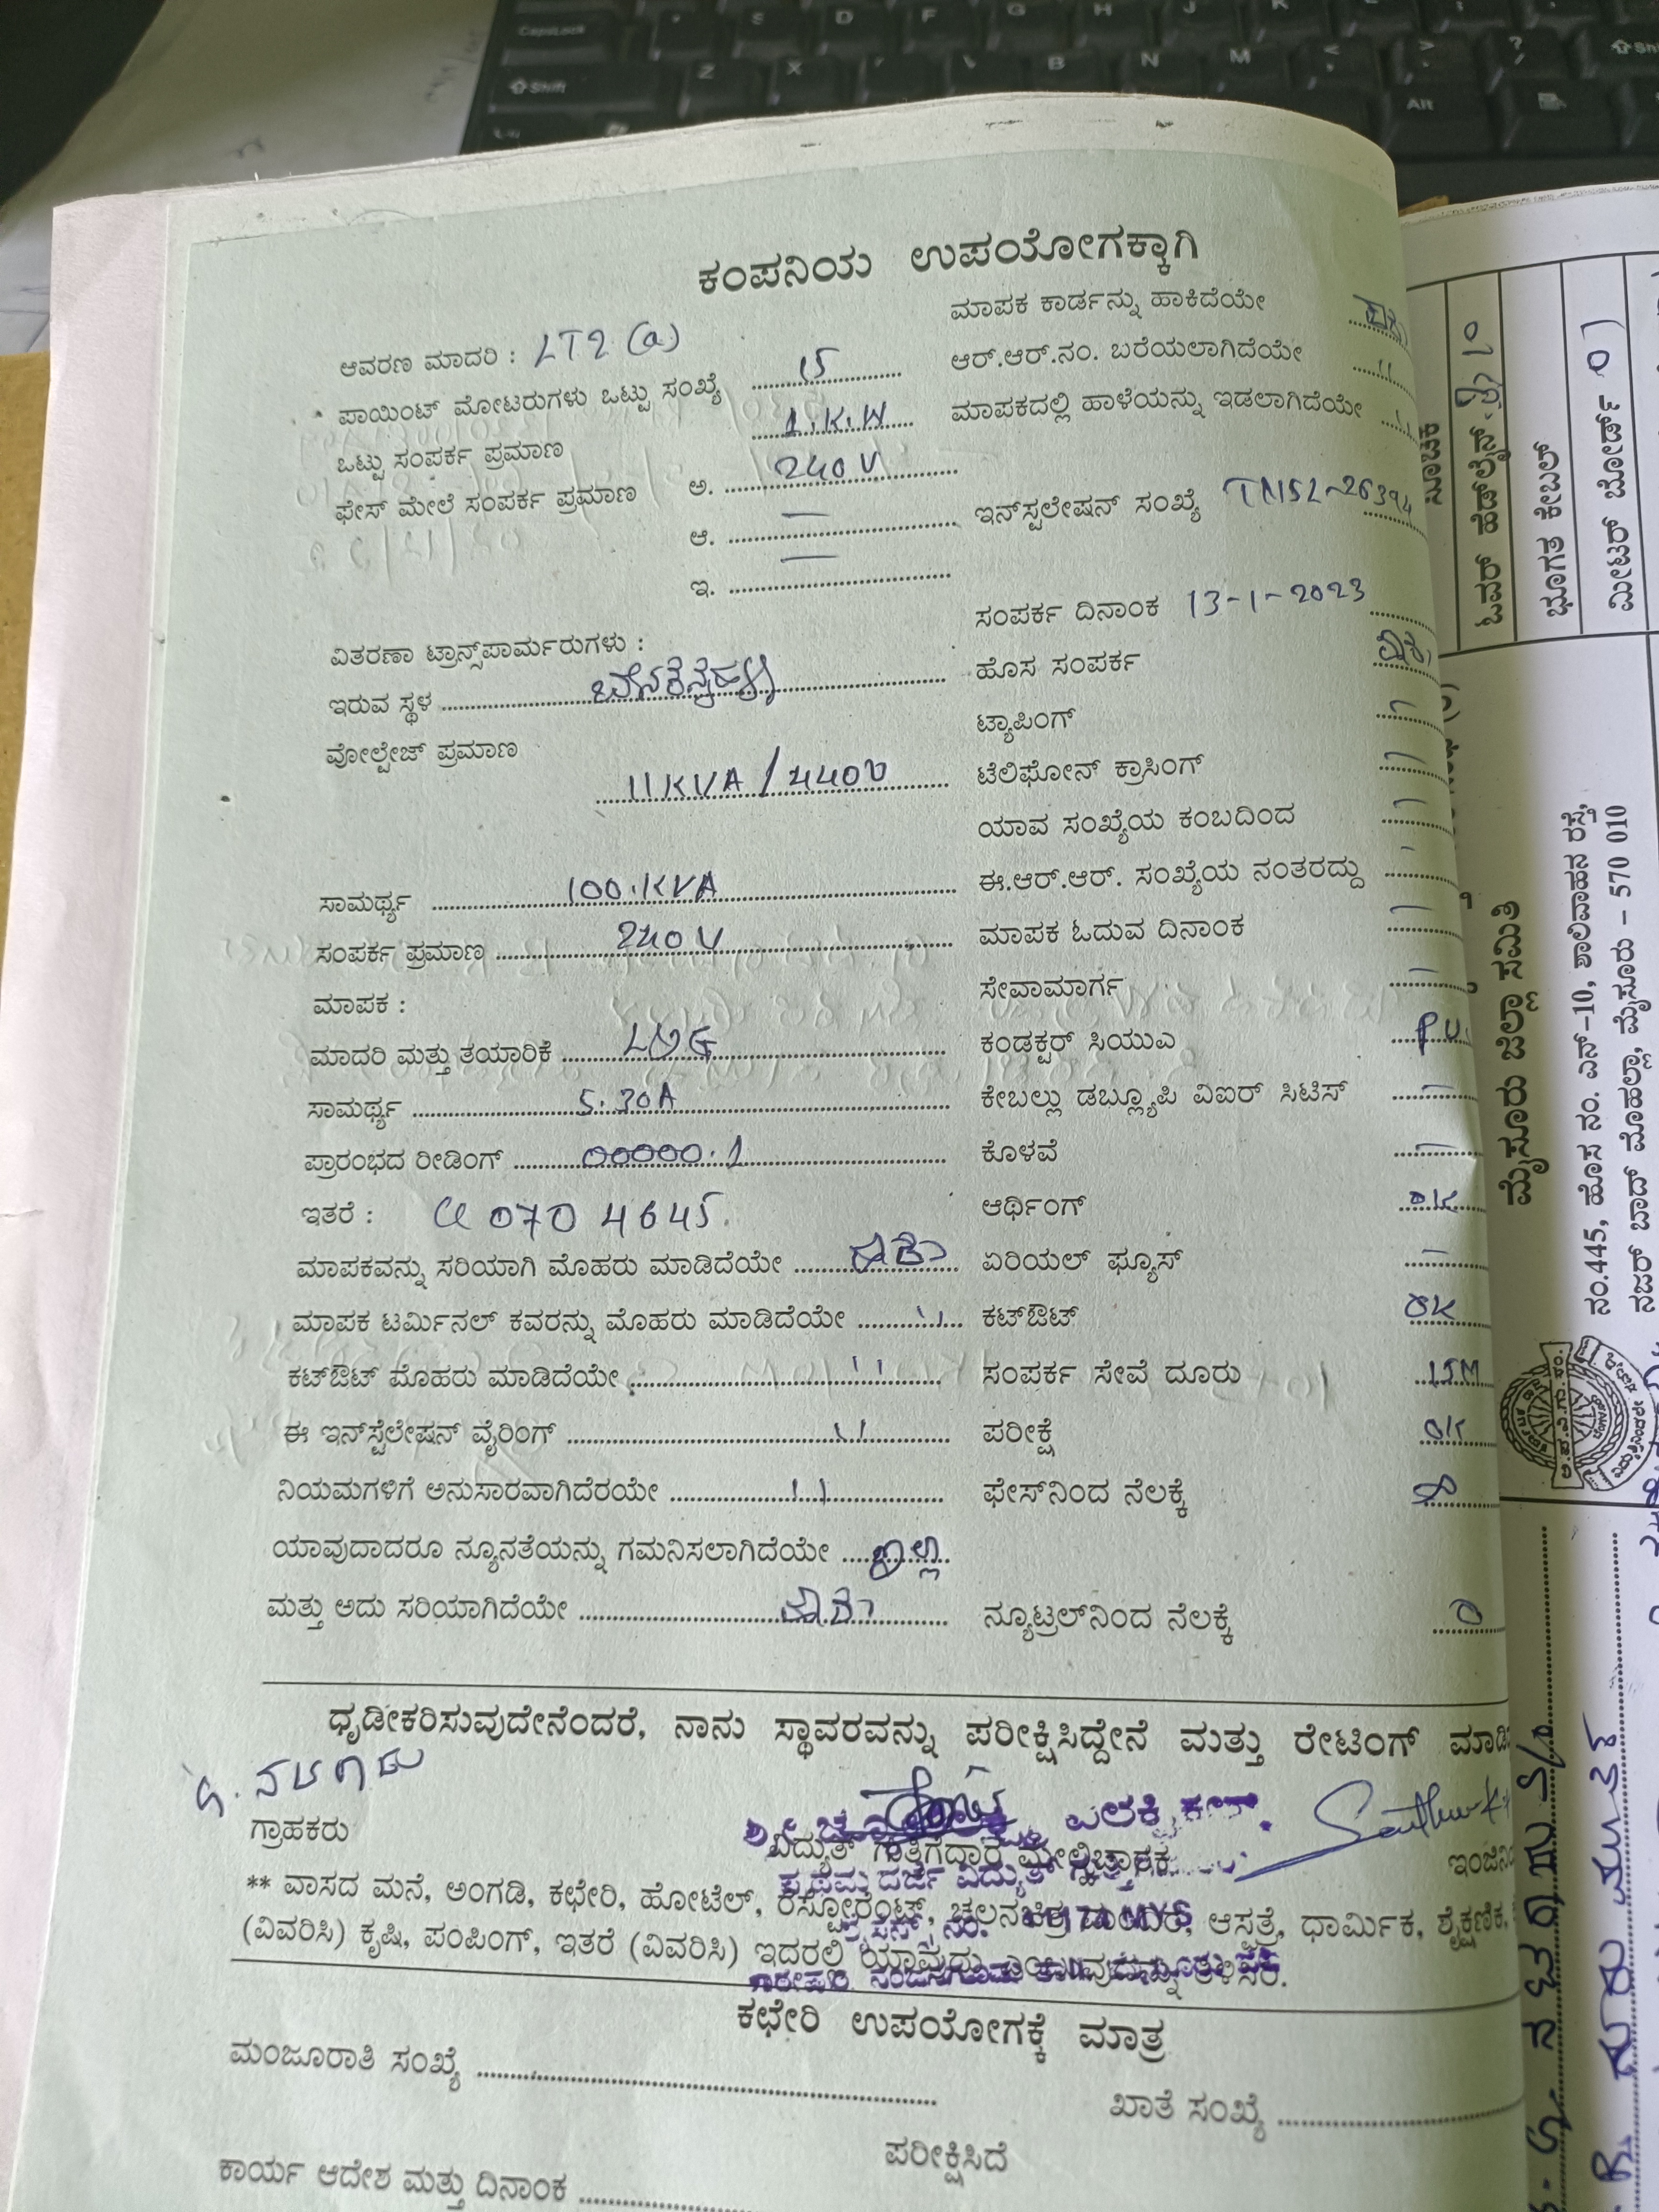 ಕಂಪನಿಯ ಉಪಯೋಗಕ್ಕಾಗಿ
ಆವರಣ ಮಾದರಿ : LT2 (a)
ಪಾಯಿಂಟ್ ಮೋಟರುಗಳು ಒಟ್ಟು ಸಂಖ್ಯೆ 15
ಒಟ್ಟು ಸಂಪರ್ಕ ಪ್ರಮಾಣ 1.K.W
ಫೇಸ್ ಮೇಲೆ ಸಂಪರ್ಕ ಪ್ರಮಾಣ ಅ. 240 V
ಆ. —
ಇ. —
ವಿತರಣಾ ಟ್ರಾನ್ಸ್‌ಪಾರ್ಮರುಗಳು :
ಇರುವ ಸ್ಥಳ
ವೋಲ್ಟೇಜ್ ಪ್ರಮಾಣ
11KVA / 440V
ಸಾಮರ್ಥ್ಯ 100.KVA
ಸಂಪರ್ಕ ಪ್ರಮಾಣ 240 V
ಮಾಪಕ :
ಮಾದರಿ ಮತ್ತು ತಯಾರಿಕೆ L&G
ಸಾಮರ್ಥ್ಯ 5.30A
ಪ್ರಾರಂಭದ ರೀಡಿಂಗ್ 00000.1
ಇತರೆ : 070 4645.
ಮಾಪಕವನ್ನು ಸರಿಯಾಗಿ ಮೊಹರು ಮಾಡಿದೆಯೇ ಹೌದು
ಮಾಪಕ ಟರ್ಮಿನಲ್ ಕವರನ್ನು ಮೊಹರು ಮಾಡಿದೆಯೇ "
ಕಟ್‌ಔಟ್ ಮೊಹರು ಮಾಡಿದೆಯೇ "
ಈ ಇನ್‌ಸ್ಟೆಲೇಷನ್ ವೈರಿಂಗ್ "
ನಿಯಮಗಳಿಗೆ ಅನುಸಾರವಾಗಿದೆರಯೇ "
ಯಾವುದಾದರೂ ನ್ಯೂನತೆಯನ್ನು ಗಮನಿಸಲಾಗಿದೆಯೇ ಇಲ್ಲ
ಮತ್ತು ಅದು ಸರಿಯಾಗಿದೆಯೇ ಹೌದು
ಮಾಪಕ ಕಾರ್ಡನ್ನು ಹಾಕಿದೆಯೇ
ಆರ್.ಆರ್.ನಂ. ಬರೆಯಲಾಗಿದೆಯೇ "
ಮಾಪಕದಲ್ಲಿ ಹಾಳೆಯನ್ನು ಇಡಲಾಗಿದೆಯೇ "
ಇನ್‌ಸ್ಟಲೇಷನ್ ಸಂಖ್ಯೆ TNSL-26394
ಸಂಪರ್ಕ ದಿನಾಂಕ 13-1-2023
ಹೊಸ ಸಂಪರ್ಕ
ಟ್ಯಾಪಿಂಗ್ —
ಟೆಲಿಫೋನ್ ಕ್ರಾಸಿಂಗ್ —
ಯಾವ ಸಂಖ್ಯೆಯ ಕಂಬದಿಂದ —
ಈ.ಆರ್.ಆರ್. ಸಂಖ್ಯೆಯ ನಂತರದ್ದು —
ಮಾಪಕ ಓದುವ ದಿನಾಂಕ —
ಸೇವಾಮಾರ್ಗ —
ಕಂಡಕ್ಟರ್ ಸಿಯುಎ
ಕೇಬಲ್ಲು ಡಬ್ಲ್ಯೂಪಿ ವಿಐರ್ ಸಿಟಿಸ್ —
ಕೊಳವೆ —
ಆರ್ಥಿಂಗ್ OK
ಏರಿಯಲ್ ಫ್ಯೂಸ್ —
ಕಟ್‌ಔಟ್ OK
ಸಂಪರ್ಕ ಸೇವೆ ದೂರು 15M
ಪರೀಕ್ಷೆ OK
ಫೇಸ್‌ನಿಂದ ನೆಲಕ್ಕೆ
ನ್ಯೂಟ್ರಲ್‌ನಿಂದ ನೆಲಕ್ಕೆ 0
ಧೃಡೀಕರಿಸುವುದೇನೆಂದರೆ, ನಾನು ಸ್ಥಾವರವನ್ನು ಪರೀಕ್ಷಿಸಿದ್ದೇನೆ ಮತ್ತು ರೇಟಿಂಗ್
ಗ್ರಾಹಕರು
ವಿದ್ಯುತ್ ಗುತ್ತಿಗೆದಾರ ಮೇಲ್ವಿಚಾರಕ
** ವಾಸದ ಮನೆ, ಅಂಗಡಿ, ಕಛೇರಿ, ಹೋಟೆಲ್, ರೆಸ್ಟೋರೆಂಟ್, ಚಲನಚಿತ್ರ ಮಂದಿರ, ಆಸ್ಪತ್ರೆ, ಧಾರ್ಮಿಕ, ಶೈಕ್ಷಣಿಕ,
(ವಿವರಿಸಿ) ಕೃಷಿ, ಪಂಪಿಂಗ್, ಇತರೆ (ವಿವರಿಸಿ) ಇದರಲ್ಲಿ ಯಾವುದು ಎಂಬುವುದನ್ನು ತಿಳಿಸಿರಿ.
ಕಛೇರಿ ಉಪಯೋಗಕ್ಕೆ ಮಾತ್ರ
ಮಂಜೂರಾತಿ ಸಂಖ್ಯೆ
ಖಾತೆ ಸಂಖ್ಯೆ
ಪರೀಕ್ಷಿಸಿದೆ
ಕಾರ್ಯ ಆದೇಶ ಮತ್ತು ದಿನಾಂಕ
ಓವರ್ ಹೆಡ್‌ಲೈನ್
ಭೂಗತ ಕೇಬಲ್
ಮೀಟರ್ ಬೋರ್ಡ್ 01
ಮೈಸೂರು ಜಿಲ್ಲಾ ಸಮಿತಿ
ನಂ.445, ಹೊಸ ನಂ. ಎನ್-10, ಶಾಲಿವಾಹನ ರಸ್ತೆ,
ನಜರ್ ಬಾದ್ ಮೊಹಲ್ಲಾ, ಮೈಸೂರು - 570 010